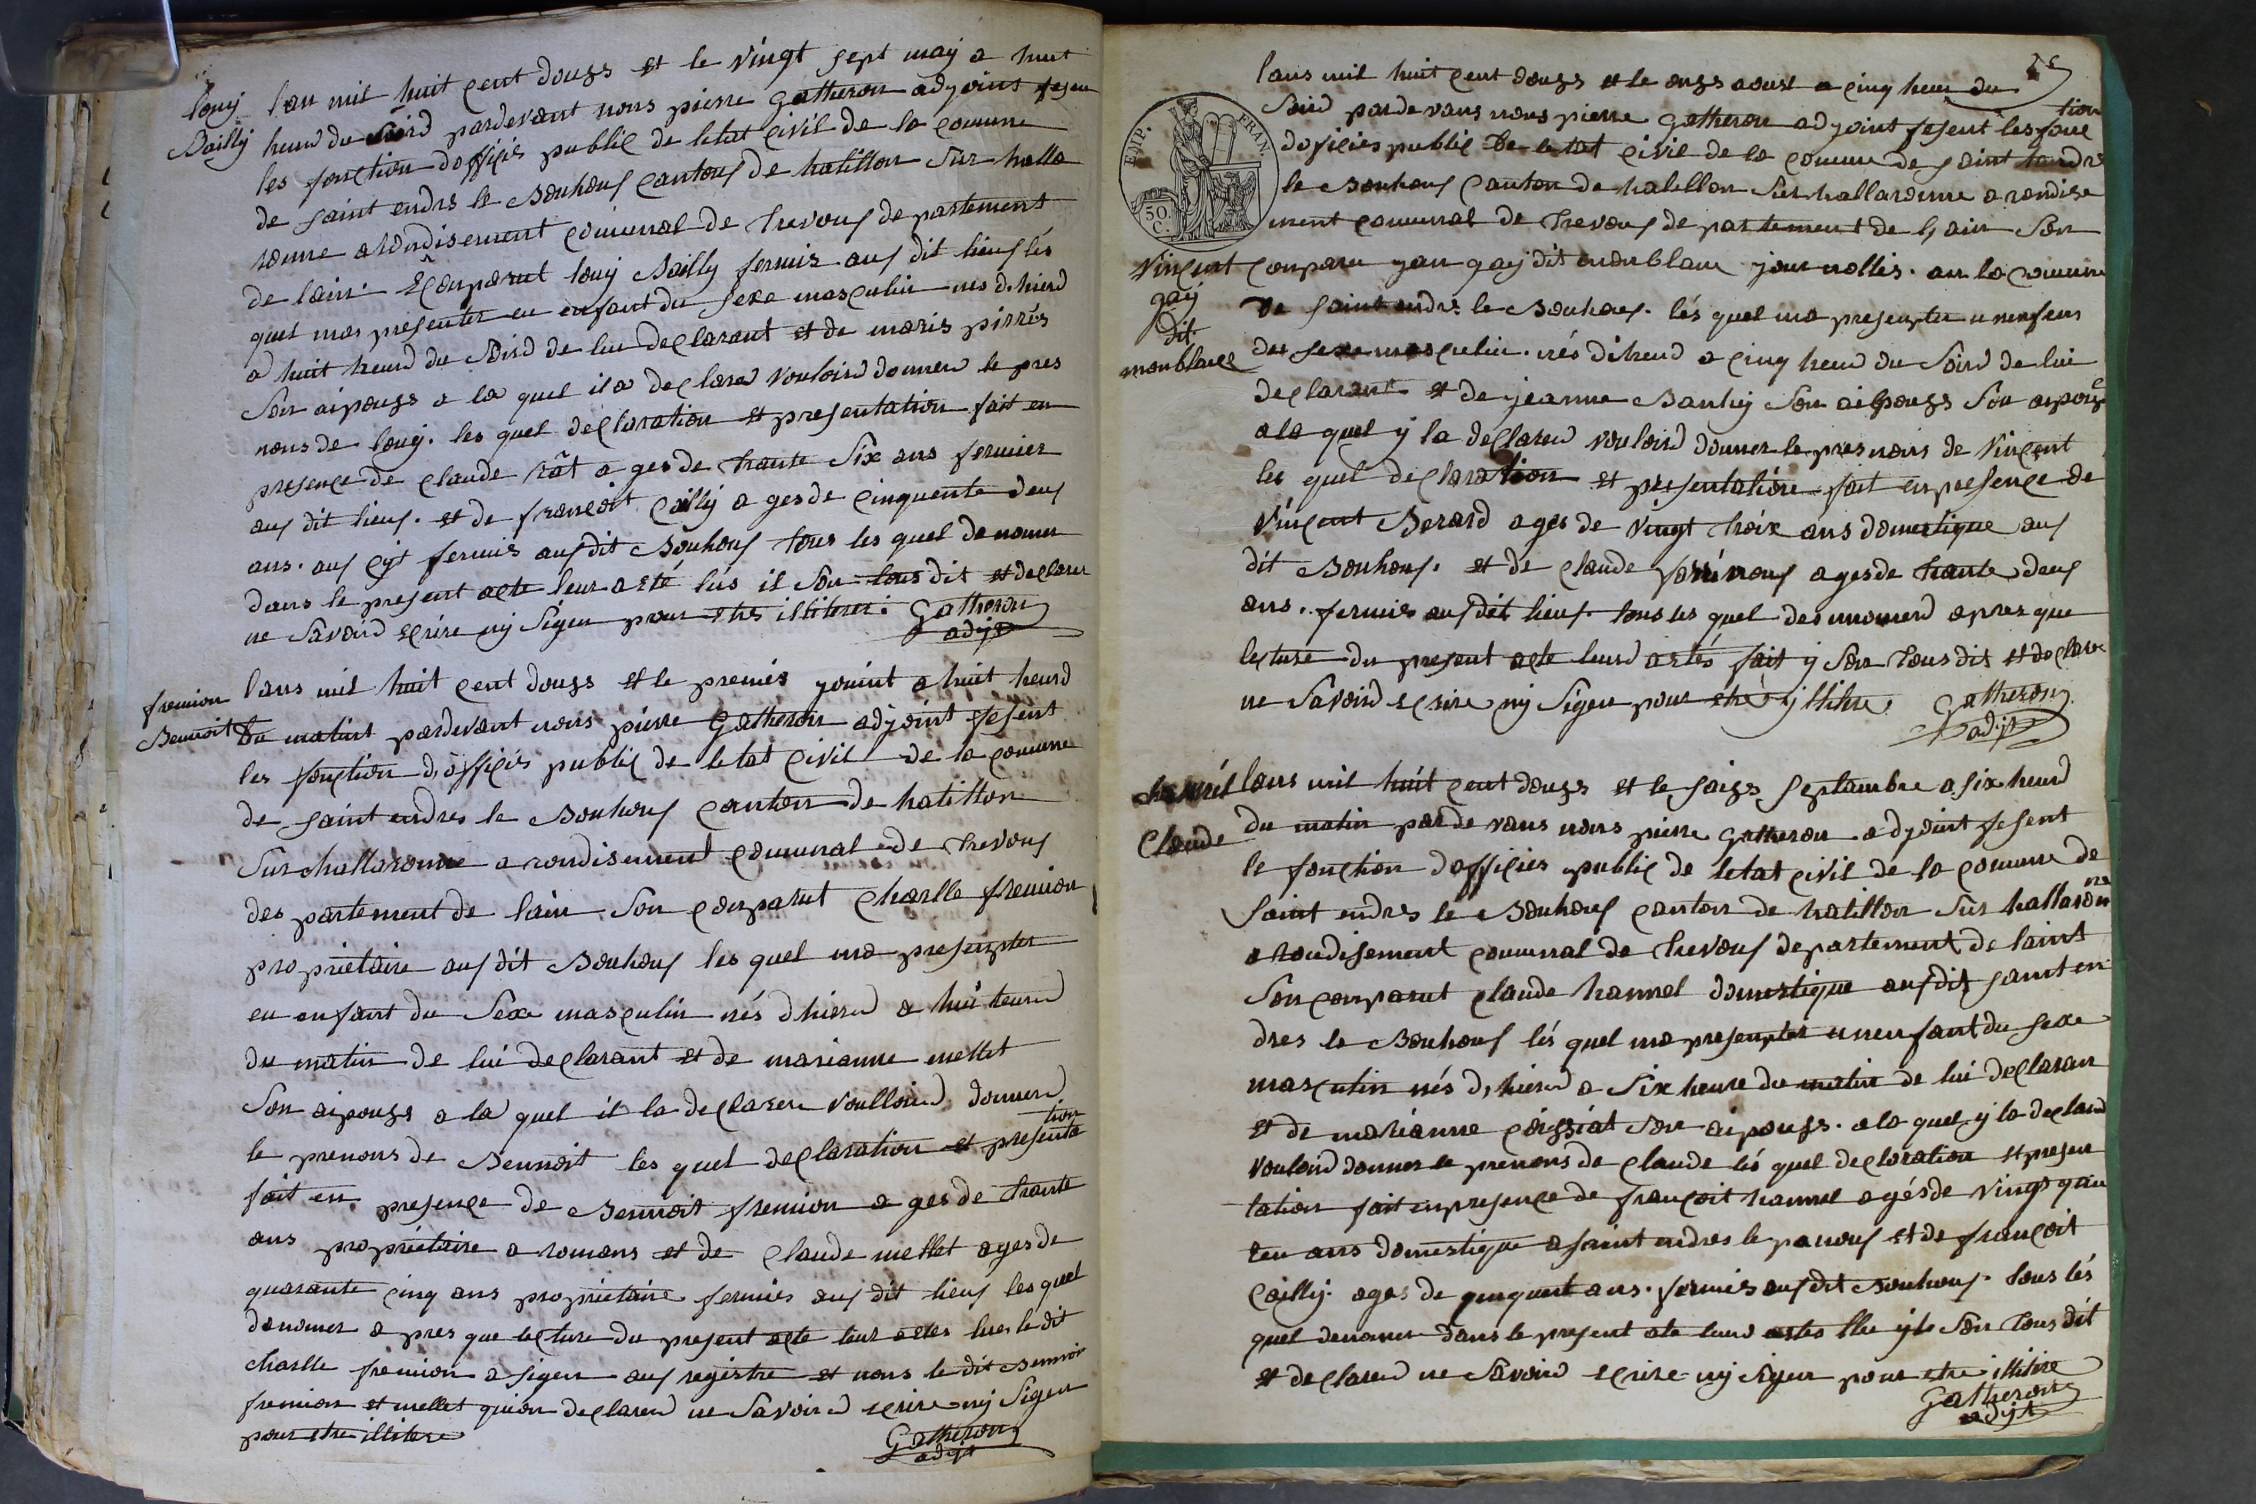 louy
Bailly
lan mil huit cent douzs et le vingt sept may a huit
heurd du soird pardevant nous pierre Gatheron adjoint fesen
les fonction dofficiés public de letat civil de la comune
de saint endrs le Bouhouf cantouf de hatillon sur halla
ronne arondisement comunal de trevouf departement
de lain. comparut louy Bailly fermis auf dit lieuf lés
quel ma présenter eu enfant du sexe masculin nés d hierd
a huit heurd du soird de lui declarant et de maris pirrés
son aipouzs a la quel il a declarer vouloird donner le pres
nons de louy. les quel declaration et presentation fait en
presence de claude rât a ges de trante six ans fermier
auf dit lieuf. et de françoit Cailly a ges de cinquente deuf
ans. auf cyt fermis auf dit Bouhouf tous les quel de nomer
dans le present acte leur a eté lus il son tous dit et declarer
ne savoird ecrire ny signer pour etre illiterer. Gatheron
adjt
fremion
Bennoit
lans mil huit cent douzs et le premiés jouint a huit heurd
du matint pardevant nous pierre Gatheron adjoint fesent
les fonction d'officiés public de letat civil de la comune
de saint endres le Bouhouf canton de hatillon
sur challaronne a rondisement comunal de trevouf
des partement de lain son comparut Charlle fremion
proprietaire auf dit Bouhouf les quel ma presenpter
eu enfant du sexe masculin nés d hierd a huit heurd
du matin de lui declarant et de marianne mettet
son aipouzs a la quel il la declarer voulloird donner
le prenons de Bennoit les quel declaration et presenta
tion
fait en presence de Bennoit fremion a ges de trante
ans proprietaire a romans et de claude mettet ages de
quarante cinq ans proprietaire fermiés auf dit lieuf les quel
denomer a pres que lecture du present acte leur a etes lues le dit
charlle fremion a signer auf registre et nous le dit Bennoit
fremion et mettet quion declarer ne savoird ecrire ny signer
pour etre illitere
Gatheron
adjt
25
EMP. FRAN.
50
C.
lans mil huit cent douzs et le onzs aoust a cinq heur du
soird pardevans nous pierre Gatheron adjoint fesent les fonc
tion
doficies public de letat civil de la comune de saint handrs
le Bouhouf canton de hatillon sur hallaronne a rondise
ment comunal de trevouf de partement de lain son
Vincent
gay
dit
monblanc
comparu yan gay dit monblanc journallis. an la comune
de saint endrs le Bouhouf. lés quel ma presenpter u nenfeus
des sexe masculin. nés dihierd a cinq heurd du soird de lui
declarant et de jeanne Bankij son aipouzs son aipouzs
a la quel y la declarerd vouloird donner le presnons de Vincent
les quel declaration et presentation fait en presence de
Vincent Berard a ges de vingt troix ans domestique auf
dit Bouhouf. et de claude a ges de trante deuf
ans. fermies auf dit lieuf. tous les quel desnomerd apres que
lecture du present acte leurd a etés fait y son tous dit et declare
ne savoird ecrire ny signer pour etre yllitere. Gatheron
adjt
Claude
lans mil huit cent douzs et le saizs septambre a six heurd
du matin pardevans nous pierre Gatheron adjoint fesent
le fonction dofficies public de letat civil de la comune de
saint endres le Bouhouf canton de hatillon sur hallaron
ne
a rondisement comunal de trevouf departement de laint
son comparut claude hannel domestique auf dit saint en
dres le Bouhouf lés quel ma presenpter u neufant du sexe
masculin nés d, hierd a six heure du matin de lui declaran
et de marianne son aipouzs. a la quel y la declard
vouloird donner le prenons de claude lés quel declaration et presen
tation fait en presence de françoit hannel a gés de vingt qau
teu ans domestique a saint endres le panouf et de françoit
Cailly. ages de ans. fermiés auf dit Bouhouf. tous lés
quel denomer dans le present ate leurd astes llu yls son tous dit
et declarerd ne savoird ecrire ny signer pour etre illitire
Gatheron
adjt